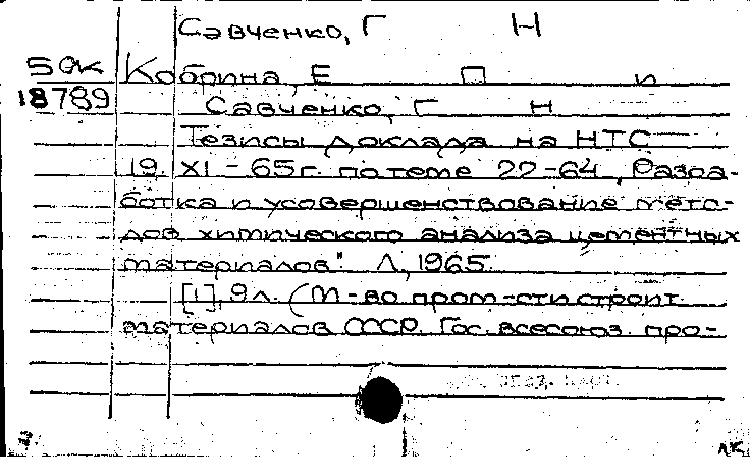 Савченко, Г Н
50к Кобрина, Е П и
18789 Савченко, Г Н
Тезисы доклада на НТС
19. XI - 65г. по теме 22-64 „Разра-
ботка и усовершенствование мето-
дов химического анализа цементных
материалов". Л, 1965.
[1], 9л. (М-во пром-сти строит.
материалов СССР. Гос. всесоюз. про-